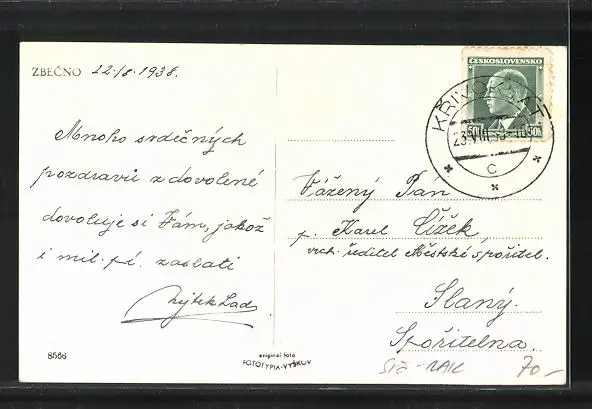 ZBEČNO 22./8.1938.
Mnoho srdečných
pozdravů z dovolené
dovoluje si Vám, jakož
i mil. pí. zaslati
ČESKOSLOVENSKO
50h 50h
KŘIVOKLÁT
23.VIII.38
C
Vážený Pán
p. Karel Čížek,
vrch. ředitel Městské spořitel.
Slaný.
Spořitelna.
70-
8566
original foto
FOTOTYPIA-VYŠKOV